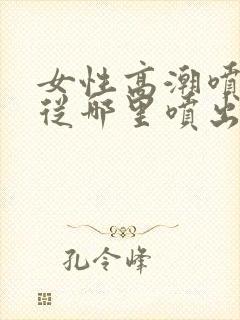 女性高潮噴
從哪里噴出
孔令峰